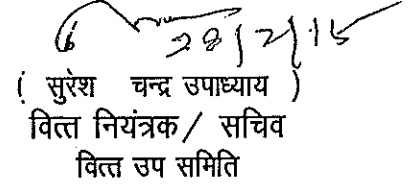 28/2/15
( सुरेश चन्द्र उपाध्याय )
वित्त नियंत्रक / सचिव
वित्त उप समिति